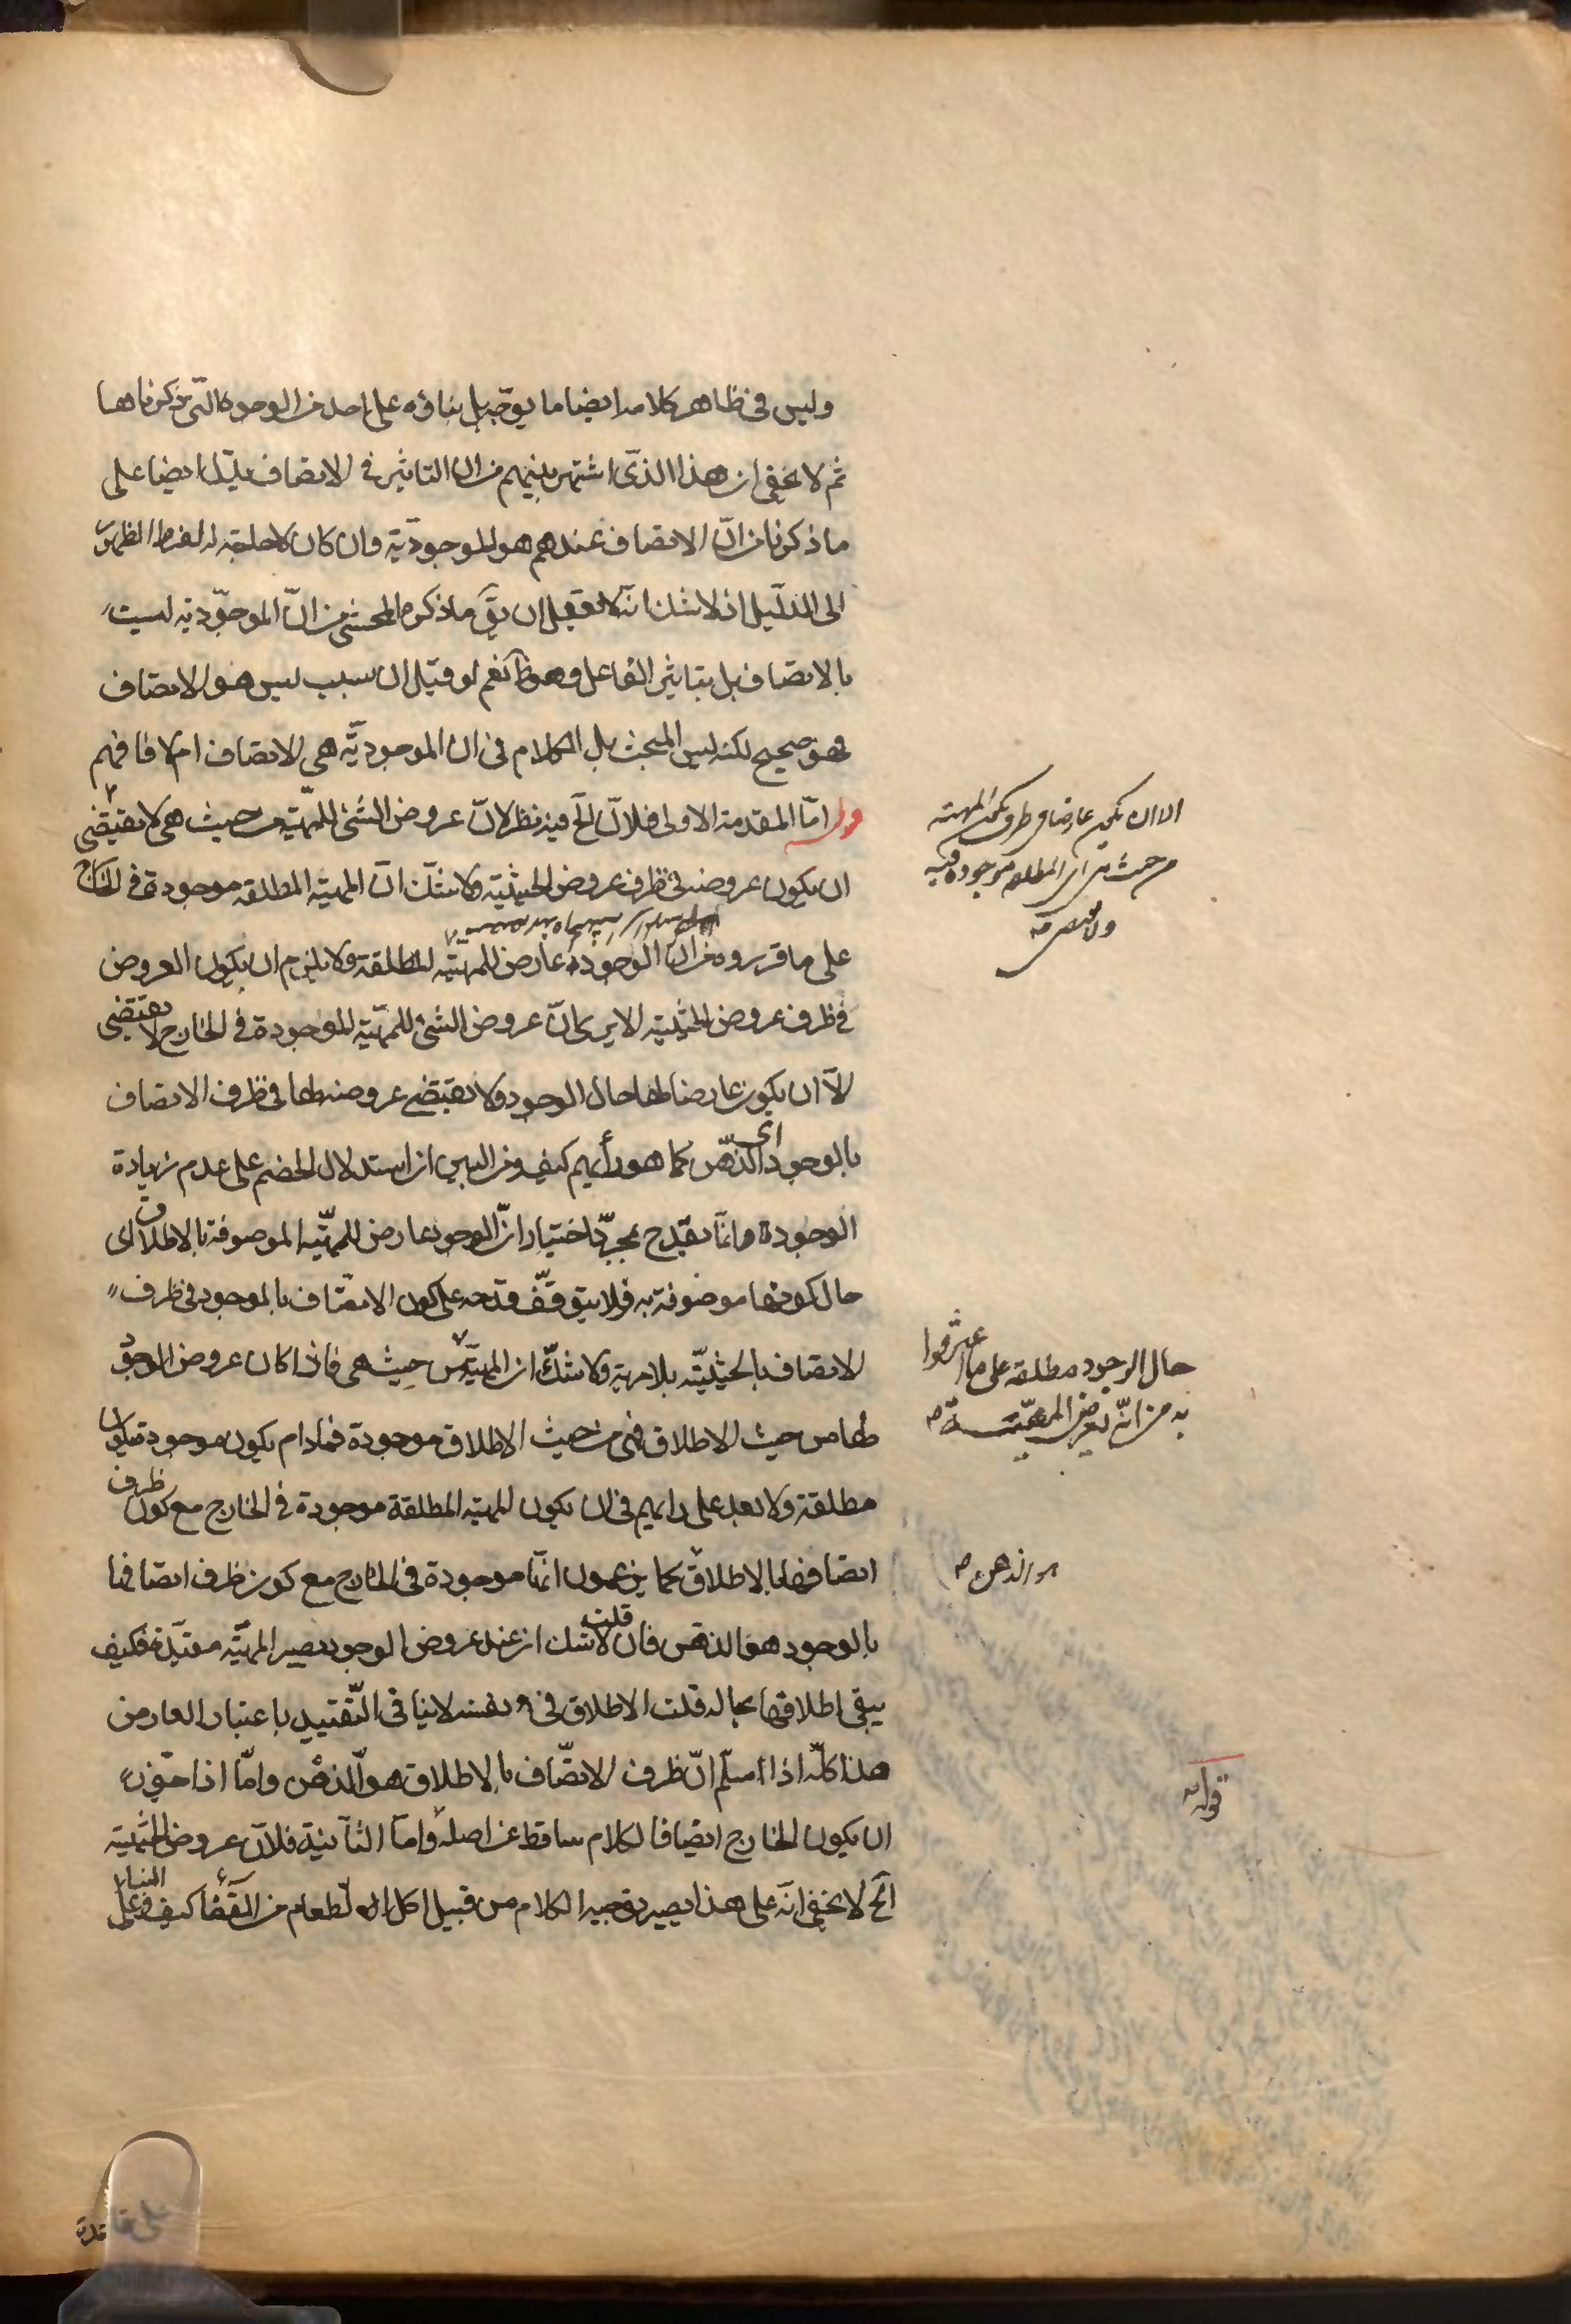 وليس فى ظاهر كلامه ايضا ما يوجب بل بناؤه على احد من الوجوه التى ذكرناها
ثم لا يخفى ان هذا الذى اشتهر بينهم من ان التاثير فى الاتصاف يدل ايضا على
ما ذكرنا من انّ الاتصاف عندهم هو الموجوديّة وان كان لا حاجة له لفرط الظهور
الى الدليل اذ لا شك انه لا يعقل ان يق ما ذكره المحشى من انّ الموجوديه ليست
بالاتصاف بل بتاثير الفاعل وهو ظ نعم لو قيل ان سبب ليس هو الاتصاف
فهو صحيح لكنه ليس المبحث بل الكلام فى ان الموجوديّه هى الاتصاف ام لا فافهم
قوله امّا المقدمة الاولى فلانّ الخ فيه نظر لانّ عروض الشئ للمهيّة من حيث هى لا يقتضى
ان يكون عروضه فى ظرف عروض الحيثية ولا شك انّ المهية المطلقه موجودة فى الخارج
على ما قرروه من ان الوجود عارض للمهيّه المطلقة ولا يلزم ان يكون العروض
فى ظرف عروض الحيثية الا يرى انّ عروض الشئ للمهيّة الموجودة فى الخارج لا يقتضى
الّا ان يكون عارضا لها حال الوجود ولا يقتضى عروضه لها فى ظرف الاتصاف
بالوجود اى الذهن كما هو رأيهم كيف ومن البين ان استدلال الخصم على عدم زيادة
الوجود انّما يقدح بمجرّد اختيار انّ الوجود عارض للمهيّه الموصوفة بالاطلاق اى
حال كونها موصوفة به فلا يتوقّف قدحه على كون الاتصاف بالوجود فى ظرف
الاتصاف بالحيثيّه بلا مرية ولا شكّ ان المهيّة من حيث هى فاذا كان عروض الوجود
لها من حيث الاطلاق فهى من حيث الاطلاق موجودة فما دام يكون موجودة يكون
مطلقة ولا بعد على رايهم فى ان يكون المهيه المطلقة موجودة فى الخارج مع كون ظرف
اتصافها بالاطلاق كما يزعمون انّها موجودة فى الخارج مع كون ظرف اتصافها
بالوجود هو الذهن فان قلت لا شك ان عند عروض الوجود يصير المهيّه مقيّدة فكيف
يبقى اطلاقها بحاله قلت الاطلاق فى نفسه لا ينافى التّقييد باعتبار العارض
هذا كلّه اذا سلّم انّ ظرف الاتصّاف بالاطلاق هو الذهن وامّا اذا جوّز
ان يكون الخارج ايضا فالكلام ساقط عن اصله وامّا الثانية فلانّ عروض الحيثية
الخ لا يخفى انّه على هذا يصير توجيه الكلام من قبيل اكل الطعام من القفا كيف وعلى
الا ان يكون عارضا فى ظرف يكون المهيه
من حيث هى اى المطلقه موجودة فيه
ولا يقتضى
حال الوجود مطلقه على ما اعترفوا
به من انّه يعرض المهيّة
هو الذهن
قوله